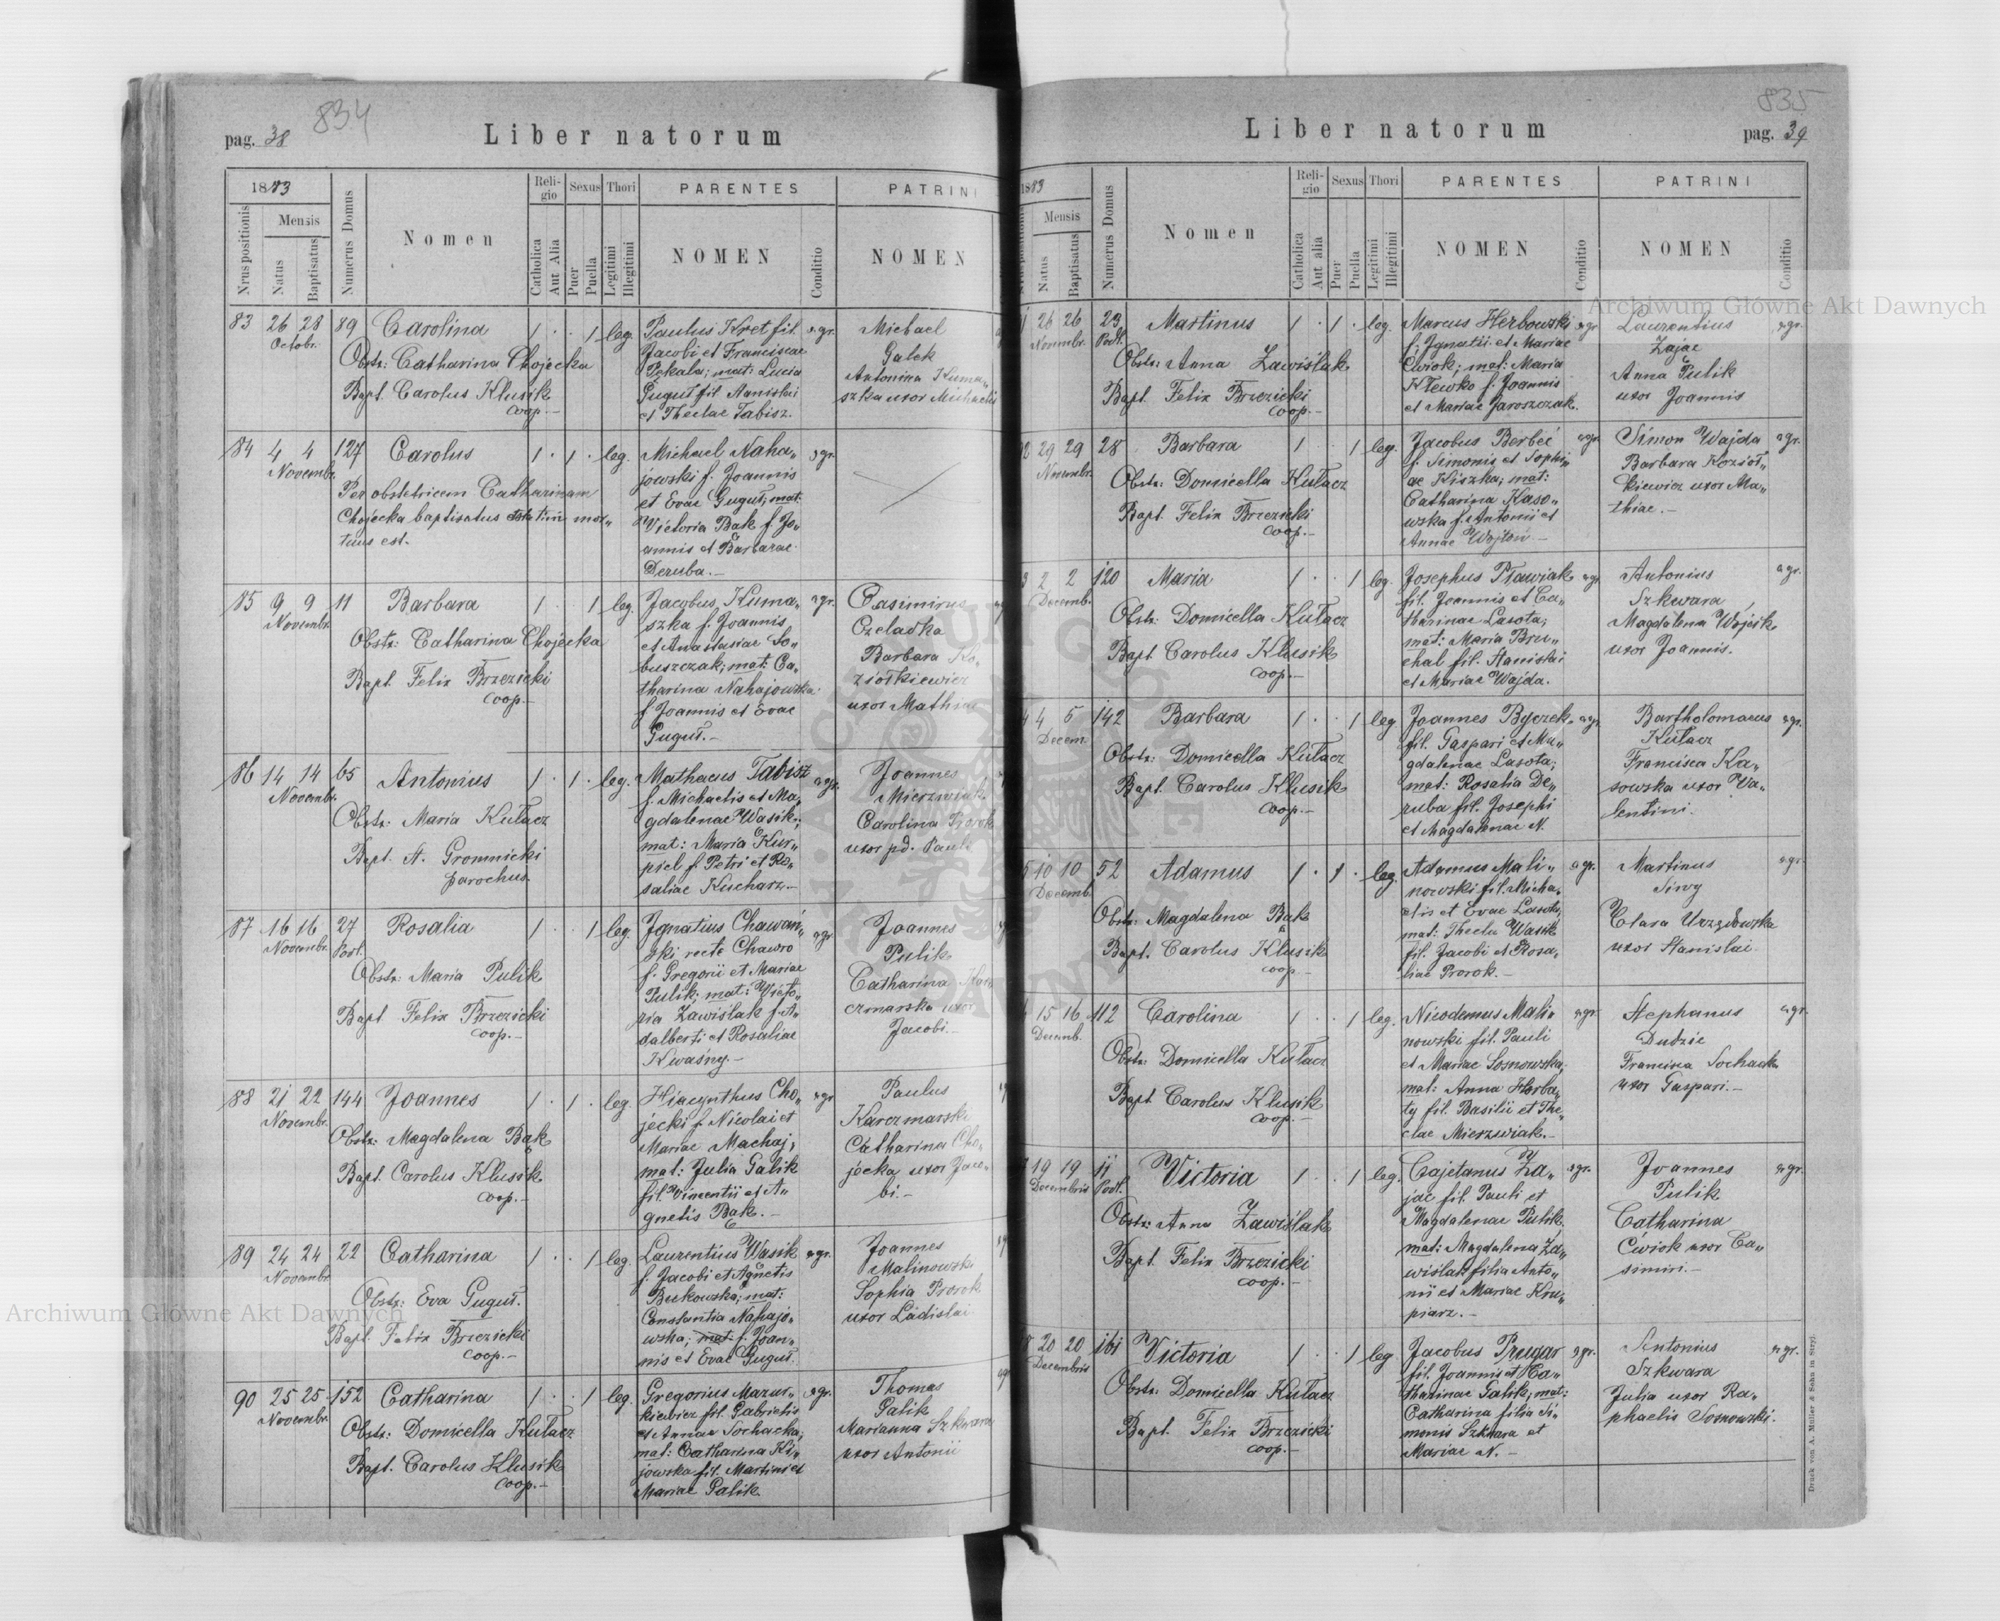 834
pag. 38
Liber natorum
1883
Religio
Sexus
Thori
PARENTES
PATRINI
Nrus positionis
Mensis
Natus
Baptisatus
Numerus Domus
Nomen
Catholica
Aut Alia
Puer
Puella
Legitimi
Illegitimi
NOMEN
Conditio
NOMEN
83 26 28 89 Carolina 1 · · 1 leg. Paulus Kret fil. agr. Michael
Octobr.
Jacobi et Franciscae
Galek
Obstr: Catharina Chojecka
Pekala; mat: Lucia
Antonina Kuma„
Bapt. Carolus Klusik
Guguł fil. Stanislai
szka uxor Michaelis
coop.—
et Theclae Tabisz.
84 4 4 127 Carolus 1 · 1 · leg. Michael Naha„ agr.
Novembr.
jowski f. Joannis
Per obstetricem Catharinam
et Evae Guguł; mat:
Chojecka baptisatus statim mor„
Victoria Bąk f. Jo„
tuus est.
annis et Barbarae
Deruba.—
85 9 9 11 Barbara 1 · · 1 leg. Jacobus Kuma„ agr. Casimirus
Novembr.
szka f. Joannis
Czeladka
Obstr: Catharina Chojecka
et Anastasiae So„
Barbara Ko„
Bapt. Felix Brzezicki
buszczak; mat: Ca„
ziołkiewicz
coop.—
tharina Nahajowska
uxor Mathiae
f. Joannis et Evae
Guguł.—
86 14 14 65 Antonius 1 · 1 · leg. Mathaeus Tabisz agr. Joannes
Novembr.
f. Michaelis et Ma„
Mierzwiak
Obstr: Maria Kułacz
gdalenae Wąsik;
Carolina Prorok
Bapt. A. Gromnicki
mat: Maria Kur„
uxor pd. Pauli
parochus.
piel f. Petri et Ro„
saliae Kucharz.—
87 16 16 27 Rosalia 1 · · 1 leg. Ignatius Chawań„ agr Joannes
Novembr. Podl.
ski recte Chawro
Pulik
Obstr: Maria Pulik
f. Gregorii et Mariae
Catharina Kar„
Bapt Felix Brzezicki
Pulik; mat: Victo„
czmarska uxor
coop.—
ria Zawiślak f. A„
Jacobi.—
dalberti et Rosaliae
Kwaśny.—
88 21 22 144 Joannes 1 · 1 · leg. Hiacynthus Cho„ agr Paulus
Novembr.
jecki f. Nicolai et
Karczmarski
Obstr: Magdalena Bąk
Mariae Machaj;
Catharina Cho„
Bapt. Carolus Klusik
mat: Julia Galik
jecka uxor Jaco„
coop.—
fil. Vincentii et A„
bi.—
gnetis Bąk.—
89 24 24 22 Catharina 1 · · 1 leg. Laurentius Wąsik agr. Joannes
Novembr
f. Jacobi et Agnetis
Malinowski
Obstr: Eva Guguł.
Bukowska; mat:
Sophia Prorok
Bapt. Felix Brzezicki
Constantia Nahajo„
uxor Ladislai
coop.—
wska; mat. f. Joan„
nis et Evae Guguł.
90 25 25 152 Catharina 1 · · 1 leg. Gregorius Mazur„ agr. Thomas
Novembr.
kiewicz fil. Gabrielis
Galik
Obstr: Domicella Kułacz
et Annae Sochacka;
Marianna Szkwara
Bapt. Carolus Klusik
mat: Catharina Ki„
uxor Antonii
coop.—
jowska fil. Martini et
Mariae Galik
835
Liber natorum
pag. 39
1883
Religio
Sexus
Thori
PARENTES
PATRINI
Mensis
Natus
Baptisatus
Numerus Domus
Nomen
Catholica
Aut alia
Puer
Puella
Legitimi
Illegitimi
NOMEN
Conditio
NOMEN
Conditio
1 26 26 23 Martinus 1 · 1 · leg. Marcus Herbowski agr Laurentius agr.
Novembr. Podl.
f. Ignatii et Mariae
Zając
Obstr: Anna Zawiślak
Ćwiok; mat: Maria
Anna Pulik
Bapt. Felix Brzezicki
Klewko f. Joannis
uxor Joannis
coop.—
et Mariae Jaroszczak.
2 29 29 28 Barbara 1 · · 1 leg. Jacobus Berbeć agr. Simon Wajda agr.
Novembr.
f. Simonis et Sophi„
Barbara Kozioł„
Obstr: Domicella Kułacz
ae Kiszka; mat:
kiewicz uxor Ma„
Bapt. Felix Brzezicki
Catharina Kaso„
thiae.—
coop.—
wska f. Antonii et
Annae Wojton—
3 2 2 120 Maria 1 · · 1 leg. Josephus Pławiak agr Antonius agr.
Decemb.
fil. Joannis et Ca„
Szkwara
Obstr: Domicella Kułacz
tharinae Lasota;
Magdalena Wójcik
Bapt. Carolus Klusik
mat: Maria Bru„
uxor Joannis.
coop.—
chal fil. Stanislai
et Mariae Wajda.
4 4 5 142 Barbara 1 · · 1 leg. Joannes Byczek agr. Bartholomaeus agr.
Decem.
fil. Gaspari et Ma„
Kułacz
Obstr: Domicella Kułacz
gdalenae Lasota;
Francisca Ka„
Bapt. Carolus Klusik
mat: Rosalia De„
sowska uxor Va„
coop.—
ruba fil. Josephi
lentini.
et Magdalenae N.
5 10 10 52 Adamus 1 · 1 · leg. Adamus Mali„ agr. Martinus agr.
Decemb.
nowski fil. Micha„
Siwy
Obstr: Magdalena Bąk
elis et Evae Lasota;
Clara Urzędowska
Bapt. Carolus Klusik
mat: Thecla Wąsik
uxor Stanislai
coop.—
fil. Jacobi et Rosa„
liae Prorok.—
15 16 112 Carolina 1 · · 1 leg. Nicodemus Mali„ agr. Stephanus agr.
Decemb.
nowski fil. Pauli
Dudzic
Obstr: Domicella Kułacz
et Mariae Sosnowska;
Francisca Sochacka
Bapt. Carolus Klusik
mat: Anna Horba„
uxor Gaspari.—
coop.—
ty fil. Basilii et The„
clae Mierzwiak.—
19 19 11 Victoria 1 · · 1 leg. Cajetanus Za„ agr. Joannes agr.
Decembris Podl.
jąc fil. Pauli et
Pulik
Obstr: Anna Zawiślak
Magdalenae Pulik
Catharina
Bapt. Felix Brzezicki
mat: Magdalena Za„
Ćwiok uxor Ca„
coop.—
wiślak filia Anto„
simiri.—
nii et Mariae Kru„
piarz.—
8 20 20 161 Victoria 1 · · 1 leg. Jacobus Prugar agr. Antonius agr.
Decembris
fil. Joannis et Ca„
Szkwara
Obstr: Domicella Kułacz
tharinae Galik; mat:
Julia uxor Ra„
Bapt. Felix Brzezicki
Catharina filia Si„
phaelis Sosnowski.
coop.—
monis Szkwara et
Mariae N.—
Druck von A. Müller & Sohn in Stryj.
Archiwum Główne Akt Dawnych
Archiwum Główne Akt Dawnych